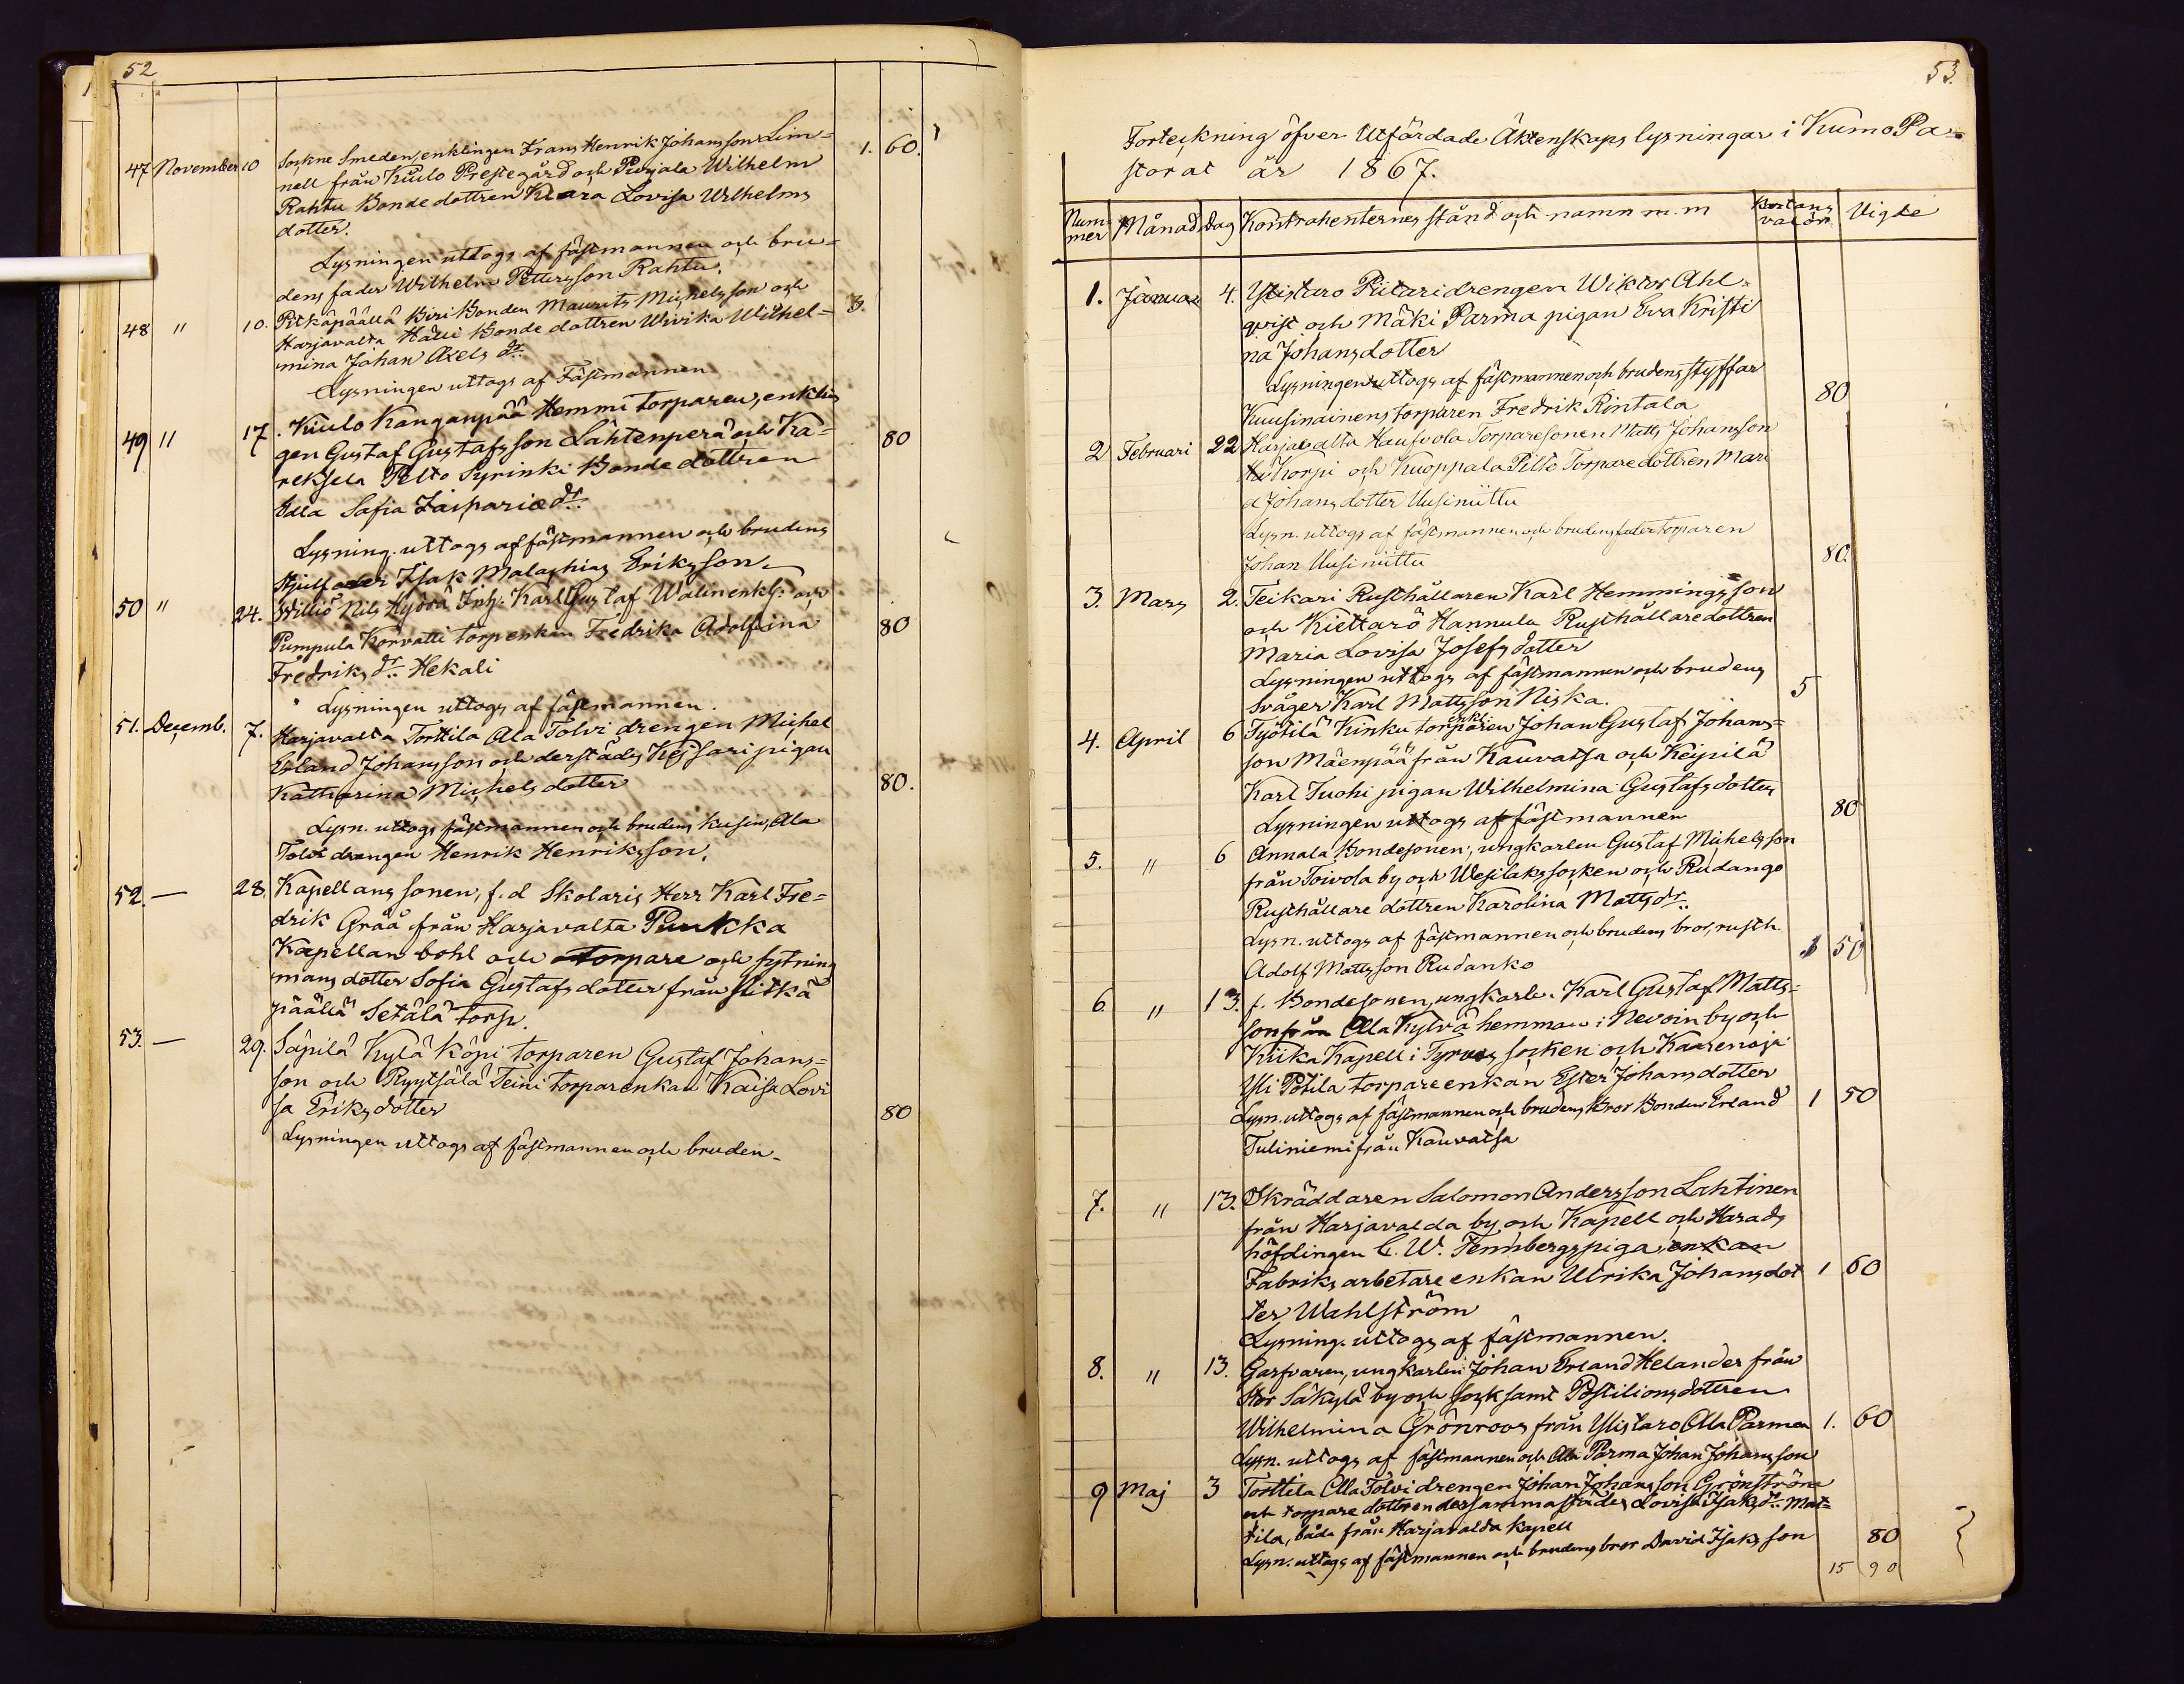 52
47 November 10 Sockne Smeden, enklingen Frans Henrik Johansson Lin= 1. 60.
nell från Kiulo Prestegård och Purjala Wilhelm
Rahtu Bonde dottren Klara Lovisa Wilhelms
dotter.
Lysningen uttogs af fästmannen och bru=
dens fader Wilhelm Pettersson Rahtu.
48 " 10. Pitkäpäällä Kiri Bonden Maurits Michelsson och 3.
Harjavalta Hälli Bonde dottren Wivika Wilhel=
mina Johan Axels dr.
Lysningen uttogs af Fästmannen
49 " 17. Kiulo Kanganpää Hemmi torparen, enklin
gen Gustaf Gustafsson Lähtenperä och Ka= 80
reksela Pelto Syrinki Bonde dottren
Ulla Safia Kasparie dr.
Lysning. uttogs af fästmannen och brudens
Isak Malachias Eriksson.
50 " 24. Willio Nils Hydrä Inh: Karl Gustaf Walin enkl: och
Pumpula Korvatti torp enkan Fredrika Adolfina 80
Fredriks dr. Hekali
Lysningen uttogs af fästmannen.
51. Decemb. 7. Harjavalta Torttila Ala Tolvi drengen Michel
Erland Johansson och derstädes Kejsari pigan
Katharina Michels dotter 80.
Lysn. uttogs fästmannen och brudens kusin, Ala
Tolvi drengen Henrik Henriksson.
52. — 28. Kapellans sonen, f.d Skolaris Herr Karl Fre=
drik Gråå från Harjavalta Pirkka
Kapellans bohl och torpare och sytning
mans dotter Sofia Gustafs dotter från Pitkä
päällä Setälä torp.
53. — 29. Säpilä Kylä Köpi torparen Gustaf Johans=
son och Ryytsälä Teini torparenkan Kaisa Lovi
sa Eriks dotter 80
Lysningen uttogs af fästmannen och bruden.
53.
Förteckning öfver Utfärdade Äktenskaps lysningar i Kumo Pa=
storat år 1867.
Num=mer Månad Dag Kontrahenternes stånd och namn m.m valör Vigde
1. Januari 4. Ylistaro Piitari drengen Wiktor Ahl=
qvist och Mäki Parma pigan Eva Kristi
na Johansdotter
Lysningen uttogs af fästmannen och brudens styffar 80
Kuusinainens torparen Fredrik Rintala
2 Februari 22 Harjavalta Hausvola Torparesonen Matts Johansson
Korpi och Kuoppala Pelto Torpare dottren Mari
a Johansdotter Uusiniittu
Lysn. uttogs af fästmannen och brudens fader torparen
Johan Uusiniittu 80.
3. Mars 2. Teikari Rusthållaren Karl Hemmingsson
och Kiettarö Hannula Rusthållaredottren
Maria Lovisa Josefsdotter
Lysningen uttogs af fästmannen och brudens
Svåger Karl Mattsson Niska. 5
4. April 6 Työtilä Kinku torparen enkl: Johan Gustaf Johans=
son Mäenpää från Kauvatsa och Keipilä
Karl Tuohi pigan Wilhelmina Gustafsdotter
Lysningen uttogs af fästmannen 80
5. " 6 Annala Bondesonen, ungkarlen Gustaf Michelsson
från Toivola by och Wesilaks socken och Rudanko
Rusthållare dottren Karolina Matts dr.
Lysn. uttogs af fästmannen och brudens bror, rusth. 1 50
Adolf Mattsson Rudanko
6. " 13. f. Bondesonen, ungkarln. Karl Gustaf Matts=
son från Alla Kylvä hemman i Nevoin by och
Kiika Kapell i Tyrvis socken och Kaarenoja
Yli Potila torpareenkan Ester Johansdotter
Lysn. uttogs af fästmannen och brudens bror Bonden Erland 1 50
Tuliniemi från Kauvatsa
7. " 13. Skräddaren Salomon Andersson Lahtinen
från Harjavalda by och Kapell och Härads
höfdingen C. W. Fennbergs piga, enkan
Fabriks arbetare enkan Ulrika Johansdot 1 60
ter Wahlström
Lysning. uttogs af fästmannen.
8. " 13. Garfvaren, ungkarlen Johan Erland Helander från
Stor Säkylä by och sock samt Postilions dottren
Wilhelmina Grönroos från Ylistaro Alla Parma 1. 60
Lysn. uttogs af fästmannen och Alla Parma Johan Johansson
9 Maj 3 Torttila Alla Tolvi drengen Johan Johansson Grönström
och torpare dottren dersammastädes Lovisa Isaks dr. Mat=
tila, båda från Harjavalda kapell 80
Lysn. uttogs af fästmannen och brudens bror David Isaksson
15 90